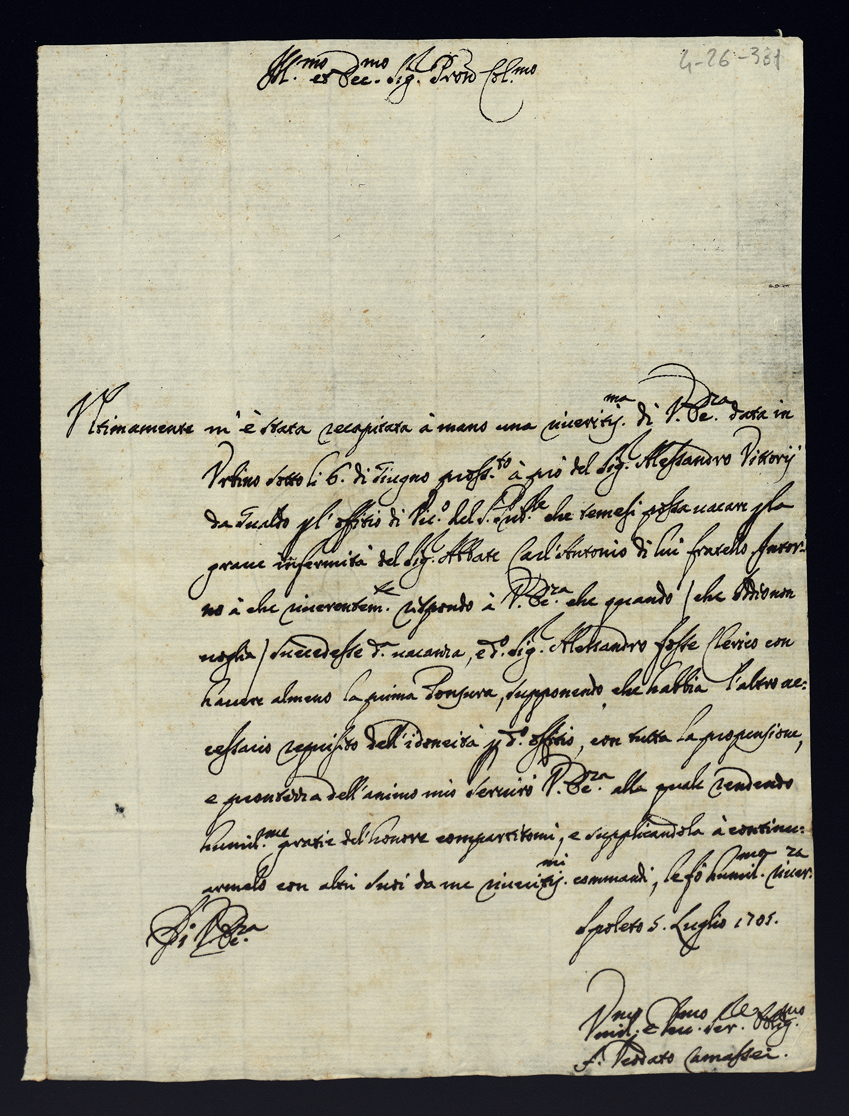 Ill.mo et Ecc.mo Sig. Pron Col.mo
4-26-331
Vltimamente m'è stata recapitata à mano una riveritis.ma di V. Ecc.za data in
Vrbino sotto li 6. di Giugno pross.to à prò del Sig. Alessandro Vittorij
da Gualdo pl'offitio di Vic.o del S. che temesi possa uacare p la
graue infermità del Sig. Abbate Carl'Antonio di lui fratello. Intor:
no à che riuerentem.te rispondo à V. Ecc.za che quando / che Iddio non
uoglia / succedesse d.a uacanza, e d.o Sig. Alessandro fosse Clerico con
hauere almeno la prima Tonsura, supponendo che habbia l'altro ne:
cessario requisito dell'idoneità p d.o offitio, con tutta la propensione,
e prontezza dell'animo mio seruirò V. Ecc.za alla quale rendendo
humil.me gratie del'honore compartitomi, e supplicandola à continu:
armelo con altri suoi da me riueritis.mi commandi, le fò humil.ma riuer.za
Di V. Ecc.za
Spoleto 5. Luglio 1705.
Vmil.mo e Ser. Oblig.mo
f. Camassei.